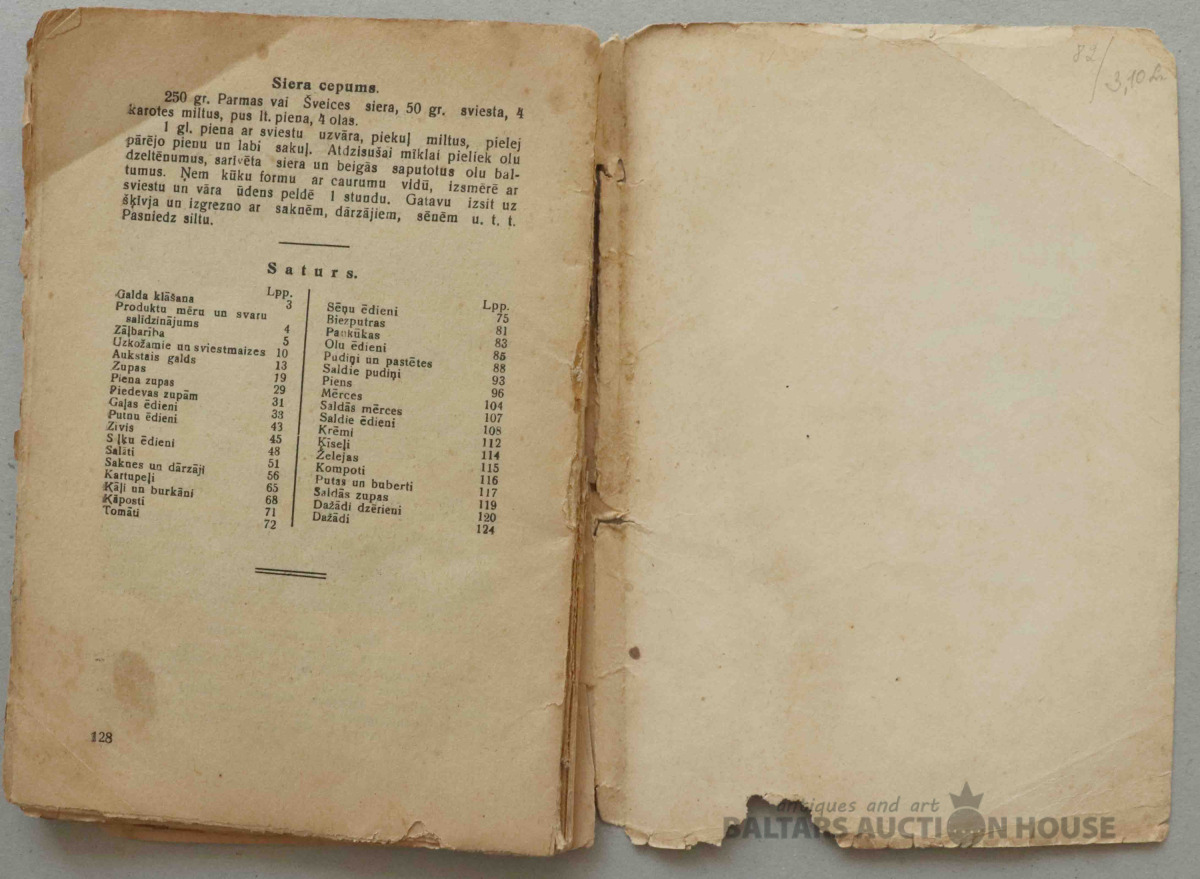 Siera cepums.
250 gr. Parmas vai Šveices siera, 50 gr. sviesta, 4
karotes miltus, pus lt. piena, 4 olas.
1 gl. piena ar sviestu uzvāra, piekuļ miltus, pielej
pārējo pienu un labi sakuļ. Atdzisušai mīklai pieliek olu
dzeltēnumus, sarīvēta siera un beigās saputotus olu bal-
tumus. Ņem kūku formu ar caurumu vidū, izsmērē ar
sviestu un vāra ūdens peldē 1 stundu. Gatavu izsit uz
šķīvja un izgrezno ar saknēm, dārzājiem, sēnēm u. t. t.
Pasniedz siltu.
Saturs.
Lpp.
Galda klāšana 3
Produktu mēru un svaru
salīdzinājums 4
Zāļbarība 5
Uzkožamie un sviestmaizes 10
Aukstais galds 13
Zupas 19
Piena zupas 29
Piedevas zupām 31
Gaļas ēdieni 33
Putnu ēdieni 43
Zivis 45
Siļķu ēdieni 48
Salāti 51
Saknes un dārzāji 56
Kartupeļi 65
Kāļi un burkāni 68
Kāposti 71
Tomāti 72
Lpp.
Sēņu ēdieni 75
Biezputras 81
Pankūkas 83
Olu ēdieni 85
Pudiņi un pastētes 88
Saldie pudiņi 93
Piens 96
Mērces 104
Saldās mērces 107
Saldie ēdieni 108
Krēmi 112
Ķīseļi 114
Želejas 115
Kompoti 116
Putas un buberti 117
Saldās zupas 119
Dažādi dzērieni 120
Dažādi 124
128
82/
3,10
antiques and art
BALTARS AUCTION HOUSE